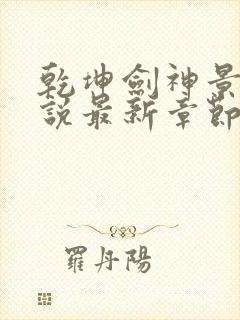 乾坤劍神景
說最新章節
羅丹陽